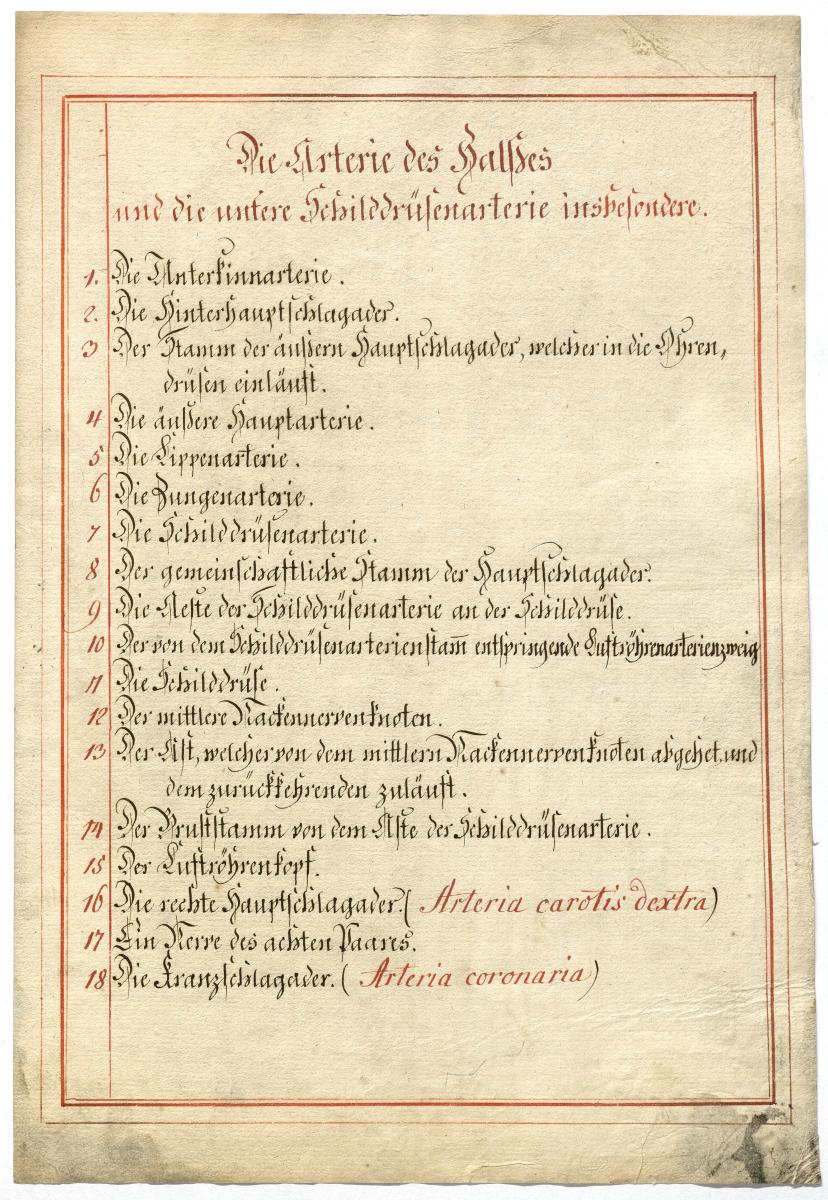 Die Arterie des Halßes
und die untere Schilddrüsenarterie insbesondere.
1. Die Unterkinnarterie.
2. Die Hinterhauptschlagader.
3 Der Stamm der äußern Hauptschlagader, welcher in die Ohren„
drüsen einläuft.
4 Die äußere Hauptarterie.
5 Die Lippenarterie.
6 Die Zungenarterie.
7 Die Schilddrüsenarterie.
8 Der gemeinschaftliche Stamm der Hauptschlagader.
9 Die Aeste der Schilddrüsenarterie an der Schilddrüse.
10 Der von dem Schilddrüsenarterienstam̅ entspringende Luftröhrenarterienzweig
11 Die Schilddrüse.
12 Der mittlere Nackennervenknoten.
13 Der Ast, welcher von dem mittlern Nackennervenknoten abgehet, und
dem zurückkehrenden zuläuft.
14 Der Bruststamm von dem Aste der Schilddrüsenarterie.
15 Der Luftröhrenkopf.
16 Die rechte Hauptschlagader. (Arteria carotis dextra)
17 Ein Nerve des achten Paares.
18 Die Kranzschlagader. (Arteria coronaria)